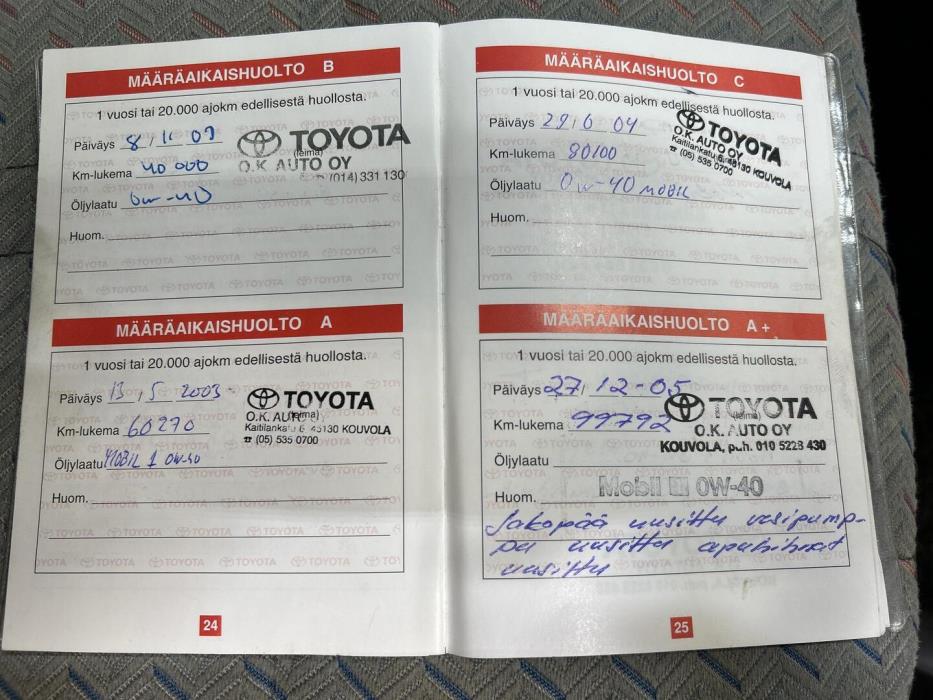 MÄÄRÄAIKAISHUOLTO B
1 vuosi tai 20.000 ajokm edellisestä huollosta.
Päiväys 8 / 11 - 01
Km-lukema 40 000
Öljylaatu 0w-40
Huom.
TOYOTA
(leima)
O.K. AUTO OY
(014) 331 130
MÄÄRÄAIKAISHUOLTO A
1 vuosi tai 20.000 ajokm edellisestä huollosta.
Päiväys 13 / 5 - 2003
Km-lukema 60270
Öljylaatu MOBIL 1 0W-40
Huom.
TOYOTA
(leima)
O.K. AUTO
Kaitilankatu 6 45130 KOUVOLA
☎ (05) 535 0700
24
MÄÄRÄAIKAISHUOLTO C
1 vuosi tai 20.000 ajokm edellisestä huollosta.
Päiväys 29/6 04
Km-lukema 80100
Öljylaatu 0w-40 MOBIL
Huom.
TOYOTA
O.K. AUTO OY
Kaitilankatu 6, 45130 KOUVOLA
☎ (05) 535 0700
MÄÄRÄAIKAISHUOLTO A +
1 vuosi tai 20.000 ajokm edellisestä huollosta.
Päiväys 27/12-05
Km-lukema 99792
Öljylaatu
Huom. Mobil 1 0W-40
Jakopää uusittu vesipump-
pu uusittu apuhihnat
uusittu
TOYOTA
(leima)
O.K. AUTO OY
KOUVOLA, puh. 010 5228 430
25